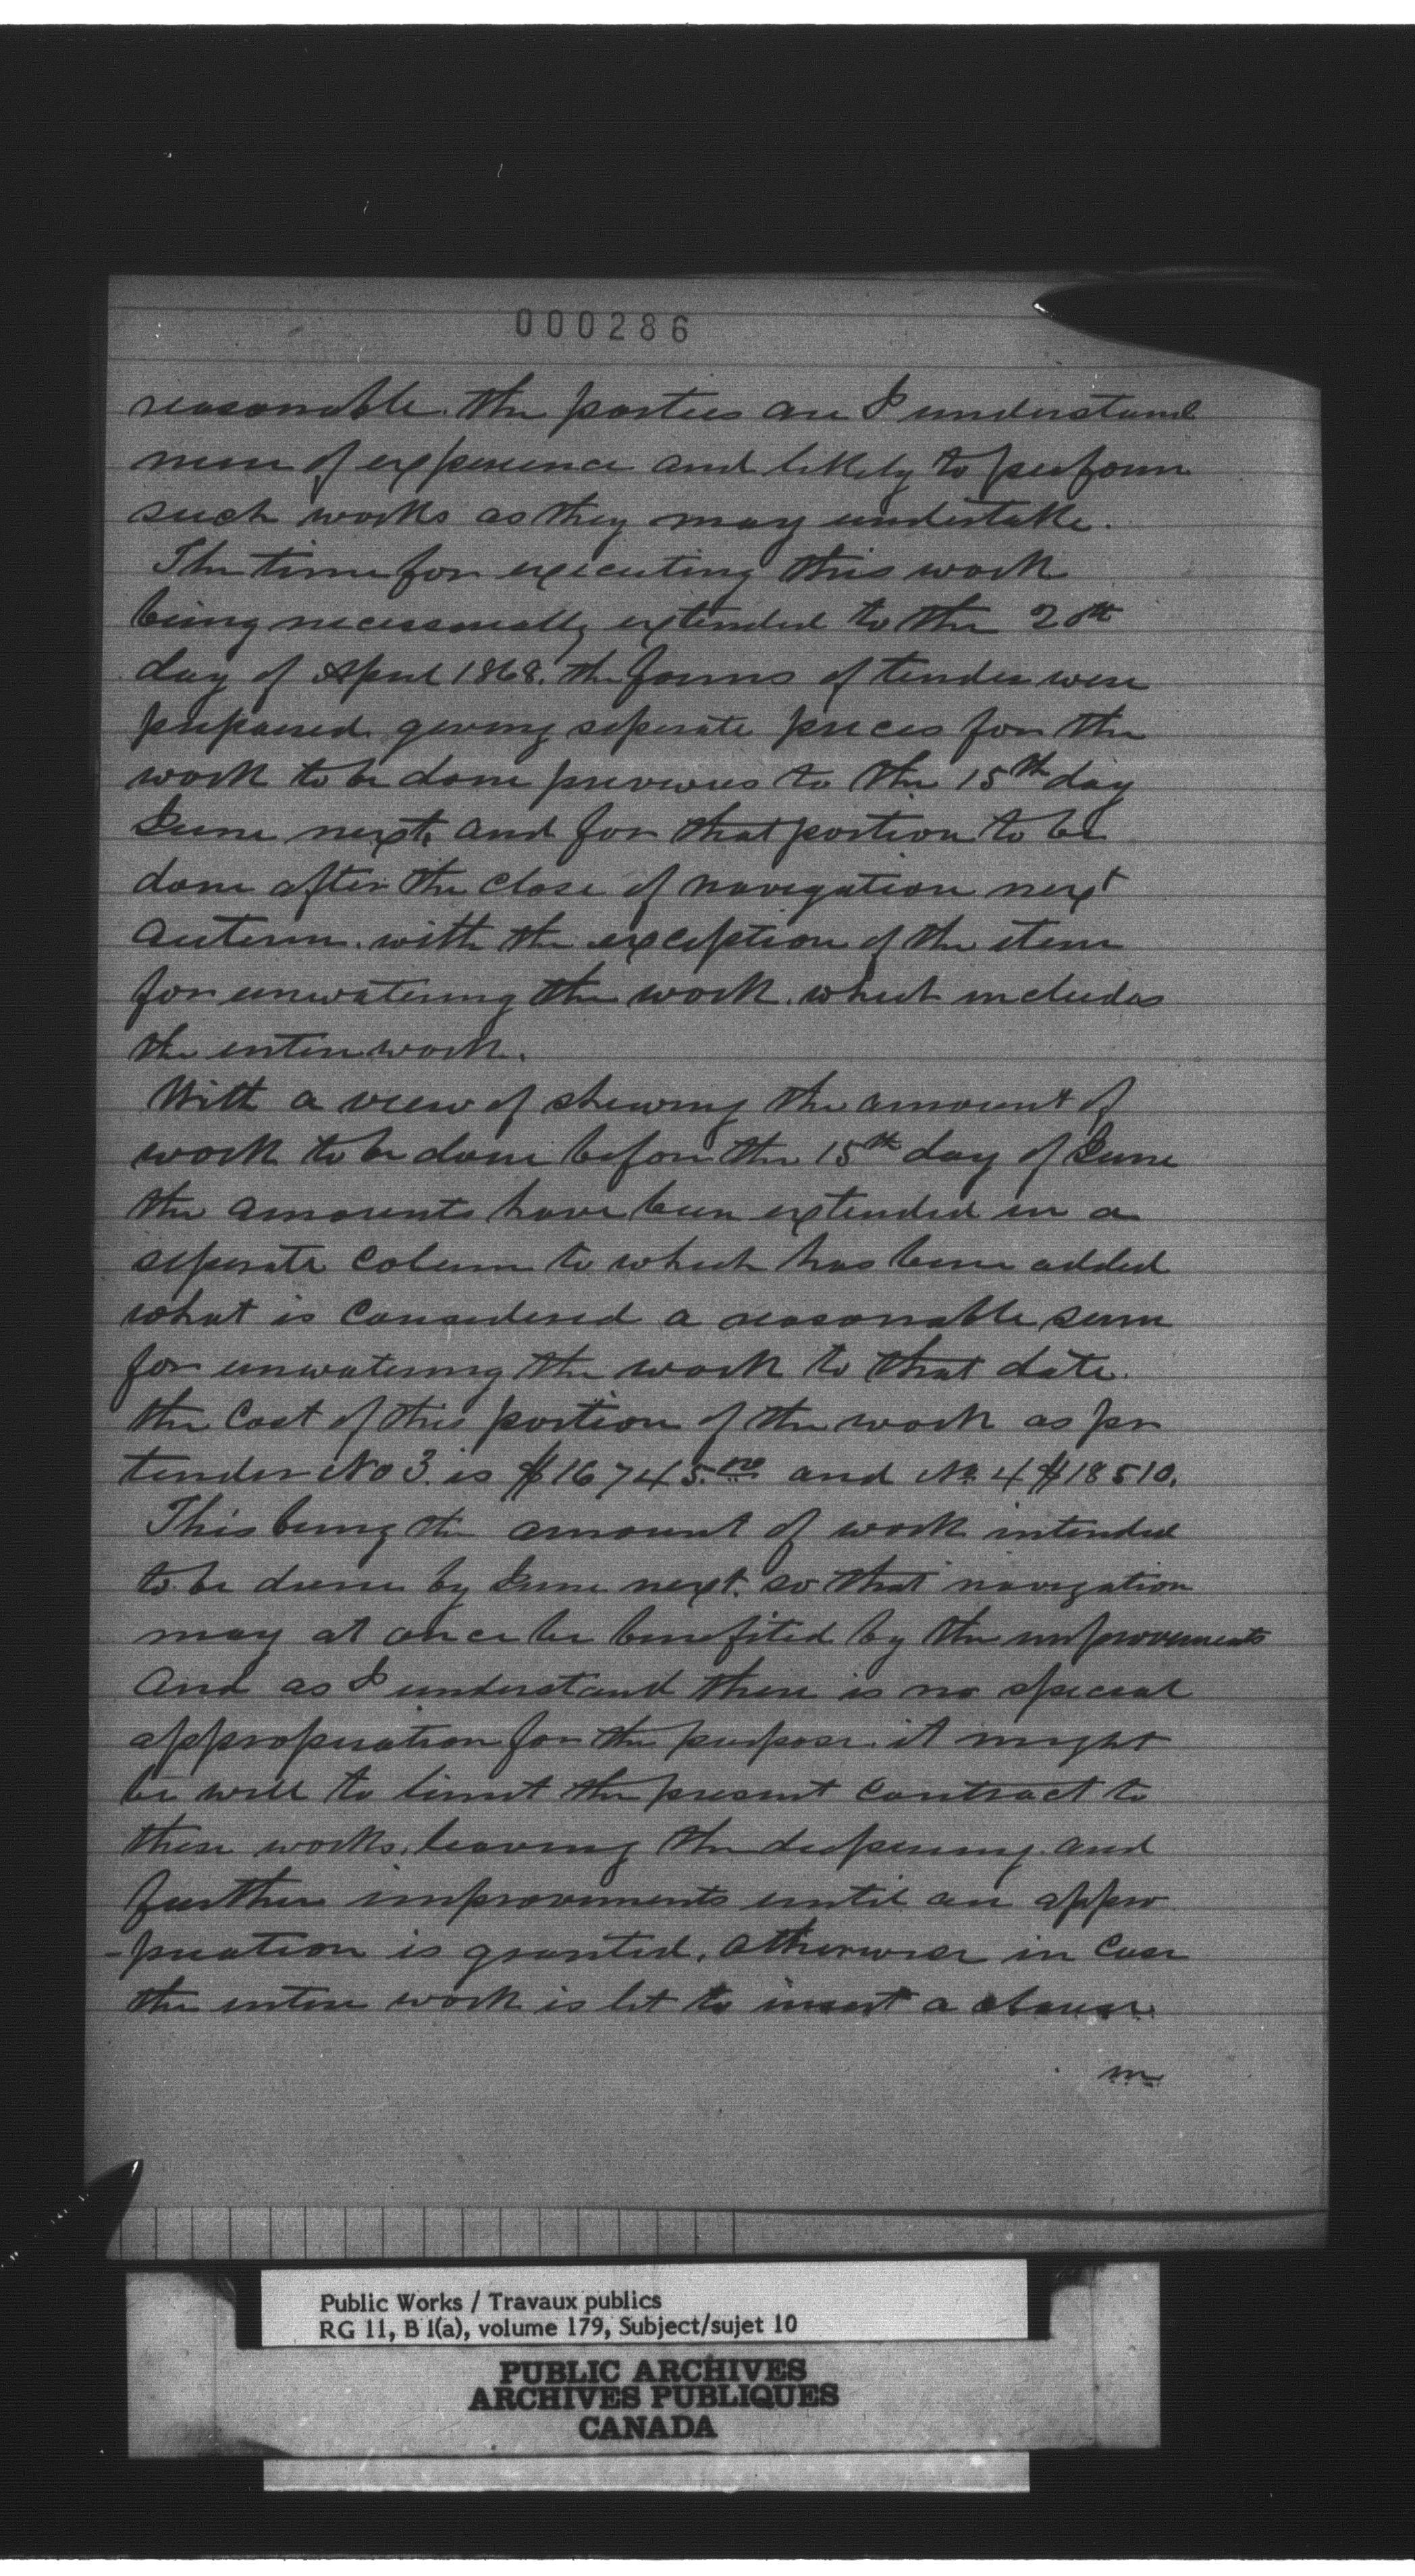 000286
reasonable. The parties are I understand
men of experience and likely to perform
such works as they may undertake.
The time for executing this work
being necessarially extended to the 20th
day of April 1868, the forms of tender were
prepaired giving seperate prices for the
work to be done previous to the 15th day
June next, and for that portion to be
done after the close of navigation next
Autumn. with the exception of the item
for unwatering the work. which includes
the entire work.
With a view of shewing the amount of
work to be done before the 15th day of June
the amounts have been extended in a
seperate column to which has been added
what is considered a reasonable sum
for unwatering the work to that date.
the cost of this portion of the work as per
tender No 3. is $16745.00 and No. 4 $18510.
This being the amount of work intended
to be done by June next. so that navigation
may at once be benefited by the improvements
And as I understand there is no special
appropriation for the purpose. it might
be well to limit the present contract to
these works, leaving the deepening and
further improvements until an appro
-priation is granted. Otherwise in case
the entire work is let to insert a clause
in
Public Works / Travaux publics
RG 11, B 1(a), volume 179, Subject/sujet 10
PUBLIC ARCHIVES
ARCHIVES PUBLIQUES
CANADA